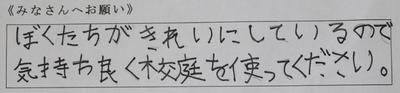 《みなさんへお願い》
ぼくたちがきれいにしているので
気持ち良く校庭を使ってください。